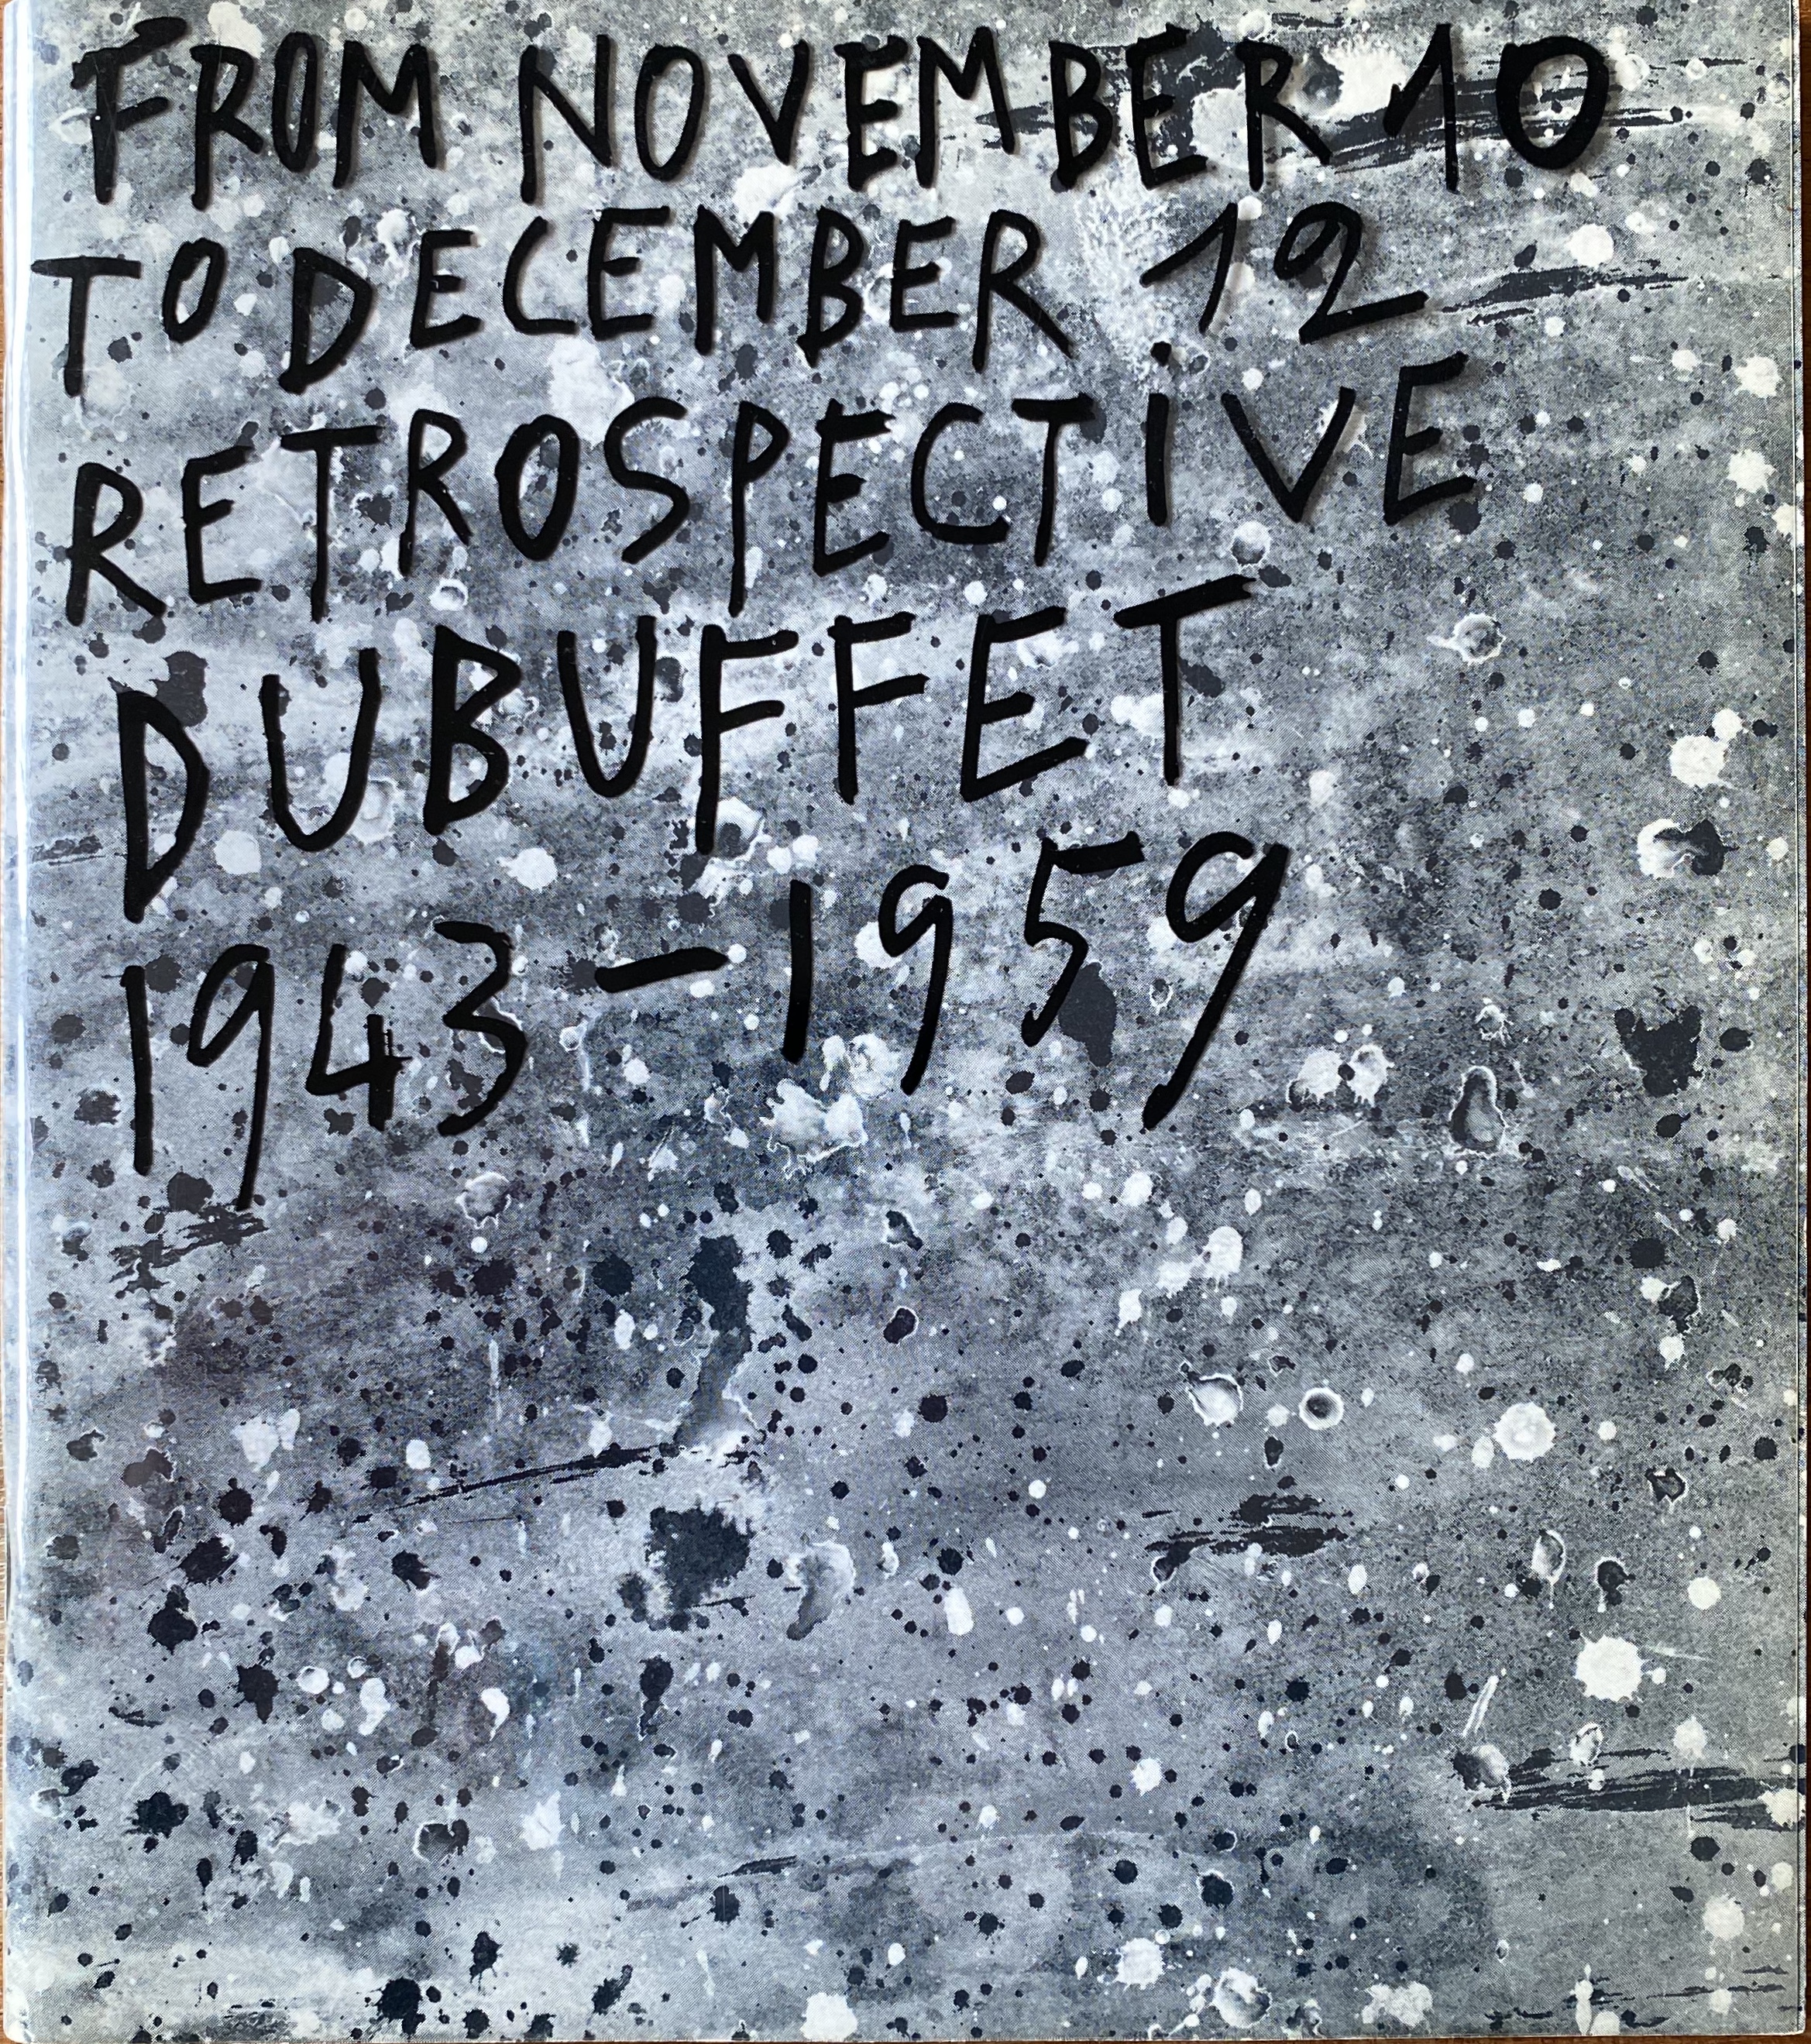 FROM NOVEMBER 10
TO DECEMBER 12
RETROSPECTiVE
DUBUFFET
1943-1959